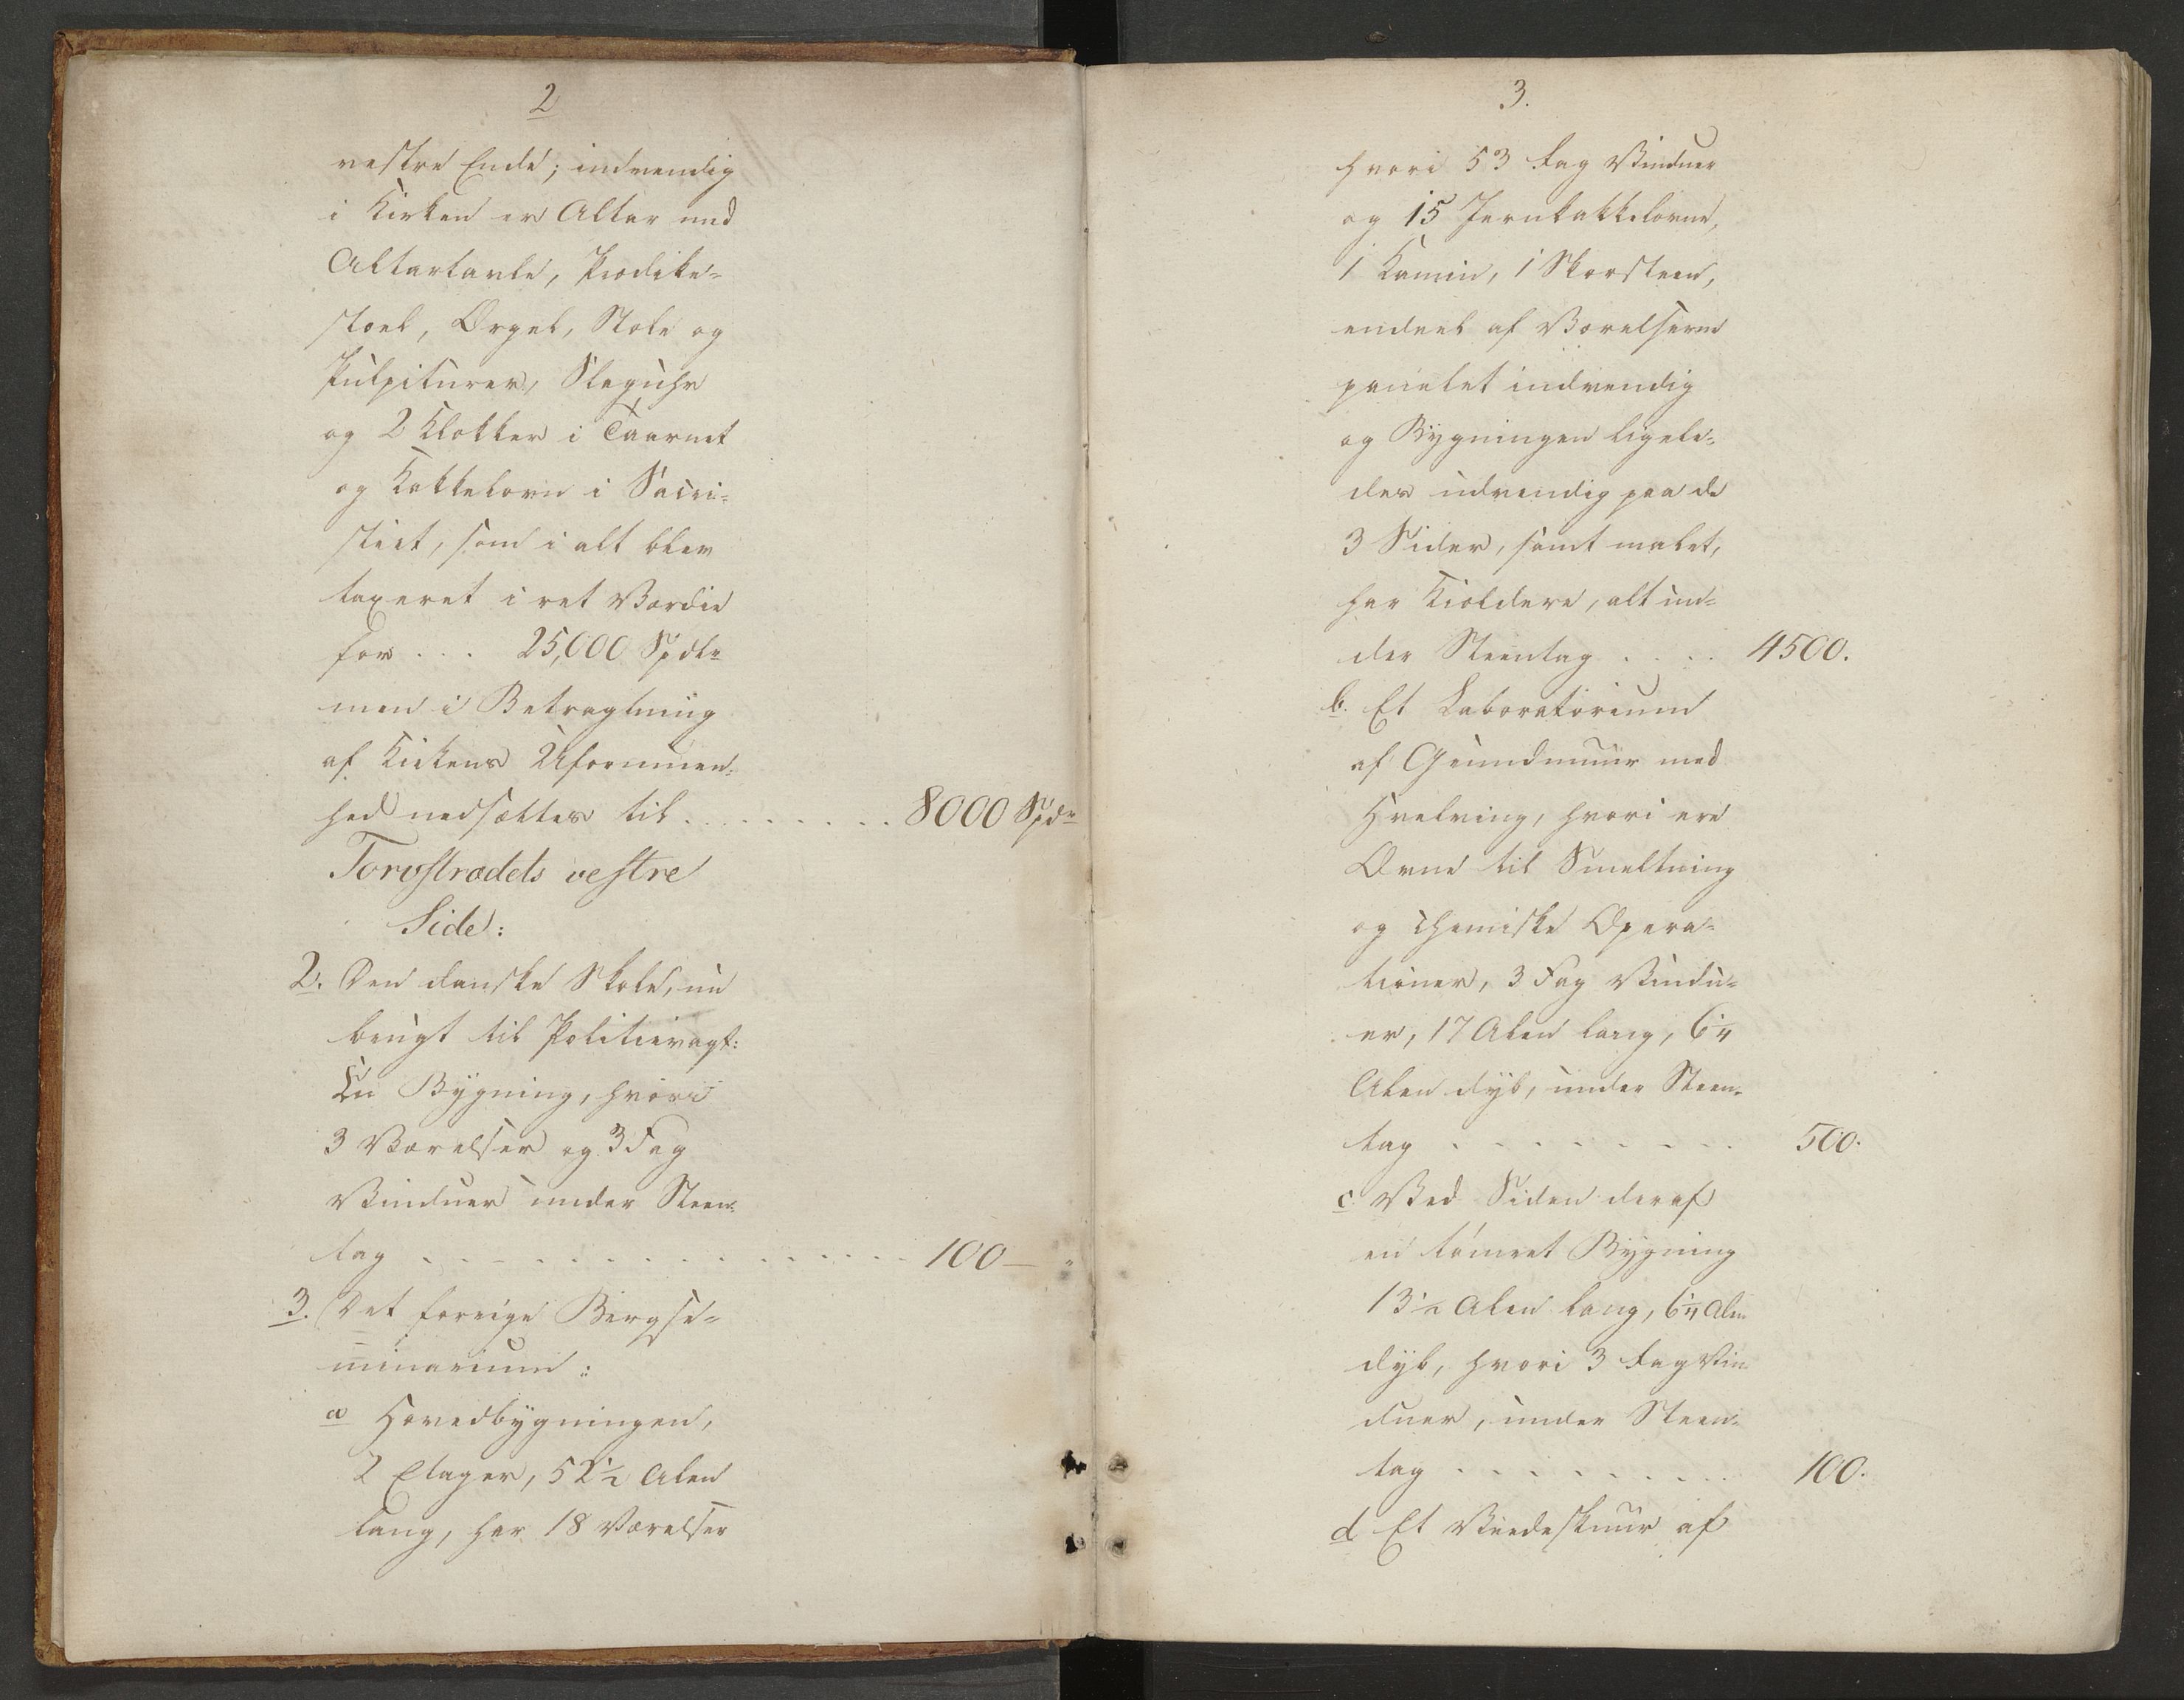 2
vestre Ende; indvendig
i Kirken er Altar med
Altartavle, Prædike-
stoel, Orgel, Stole og
Pulpiturer, Slaguhr
og 2 Klokker i Taarnet
og Kakkelovn i Sacri-
stiet, som i alt blev
taxeret i ret Værdie
for . . . 25,000 Spdlr
men i Betragtning
af Kirkens Uformuen-
hed nedsættes til . . . . . . . . . 8000 Spdr
Torvstrædets vestre
Side:
2. Den danske Skole, nu
brugt til Politievagt:
En Bygning, hvori
3 Værelser og 3 Fag
Vinduer under Steen-
tag . . . . . . . . . . . . . . . . 100 — "
3. Det forrige Bergse-
minarium:
a Hovedbygningen,
2 Etager, 52½ Alen
lang, har 18 Værelser
3.
hvori 53 Fag Vinduer
og 15 Jernkakkelovne,
1 Kamin, 1 Skorsteen,
endeel af Værelserne
panelet indvendig
og Bygningen ligele-
des udvendig paa de
3 Sider, samt malet,
har Kieldere, alt un-
der Steentag . . . . 4500.
b. Et Laboratorium
af Grundmuur med
Hvelving, hvori ere
Ovne til Smeltning
og chemiske Opera-
tioner, 3 Fag Vindu-
er, 17 Alen lang, 6¼
Alen dyb, under Steen-
tag . . . . . . . . . 500.
c. Ved Siden deraf
en tømret Bygning
13½ Alen lang, 6¼ Alen
dyb, hvori 3 Fag Vin-
duer, under Steen-
tag . . . . . . . . . 100.
d Et Vedeskuur af